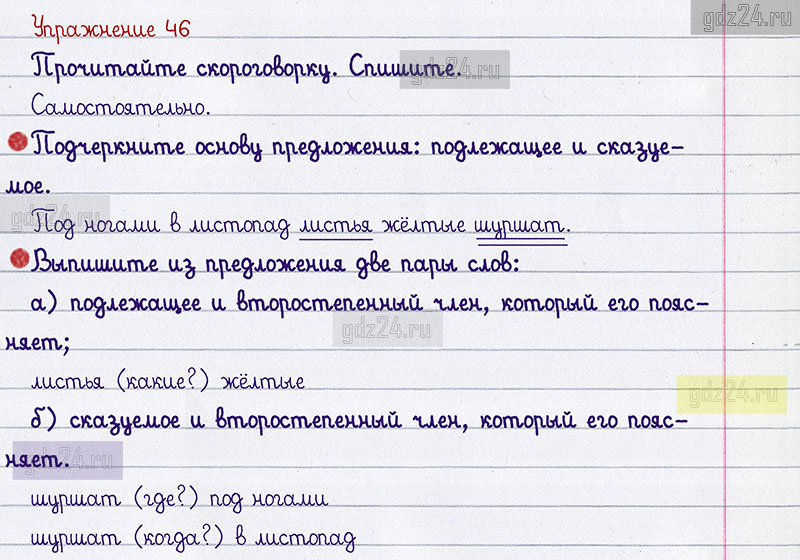 gdz24.ru
Упражнение 46
Прочитайте скороговорку. Спишите.
gdz24.ru
Самостоятельно.
Подчеркните основу предложения: подлежащее и сказуе-
мое.
gdz24.ru
Под ногами в листопад листья жёлтые шуршат.
Выпишите из предложения две пары слов:
а) подлежащее и второстепенный член, который его пояс-
gdz24.ru
няет;
листья (какие?) жёлтые
gdz24.ru
б) сказуемое и второстепенный член, который его пояс-
няет.
gdz24.ru
шуршат (где?) под ногами
шуршат (когда?) в листопад